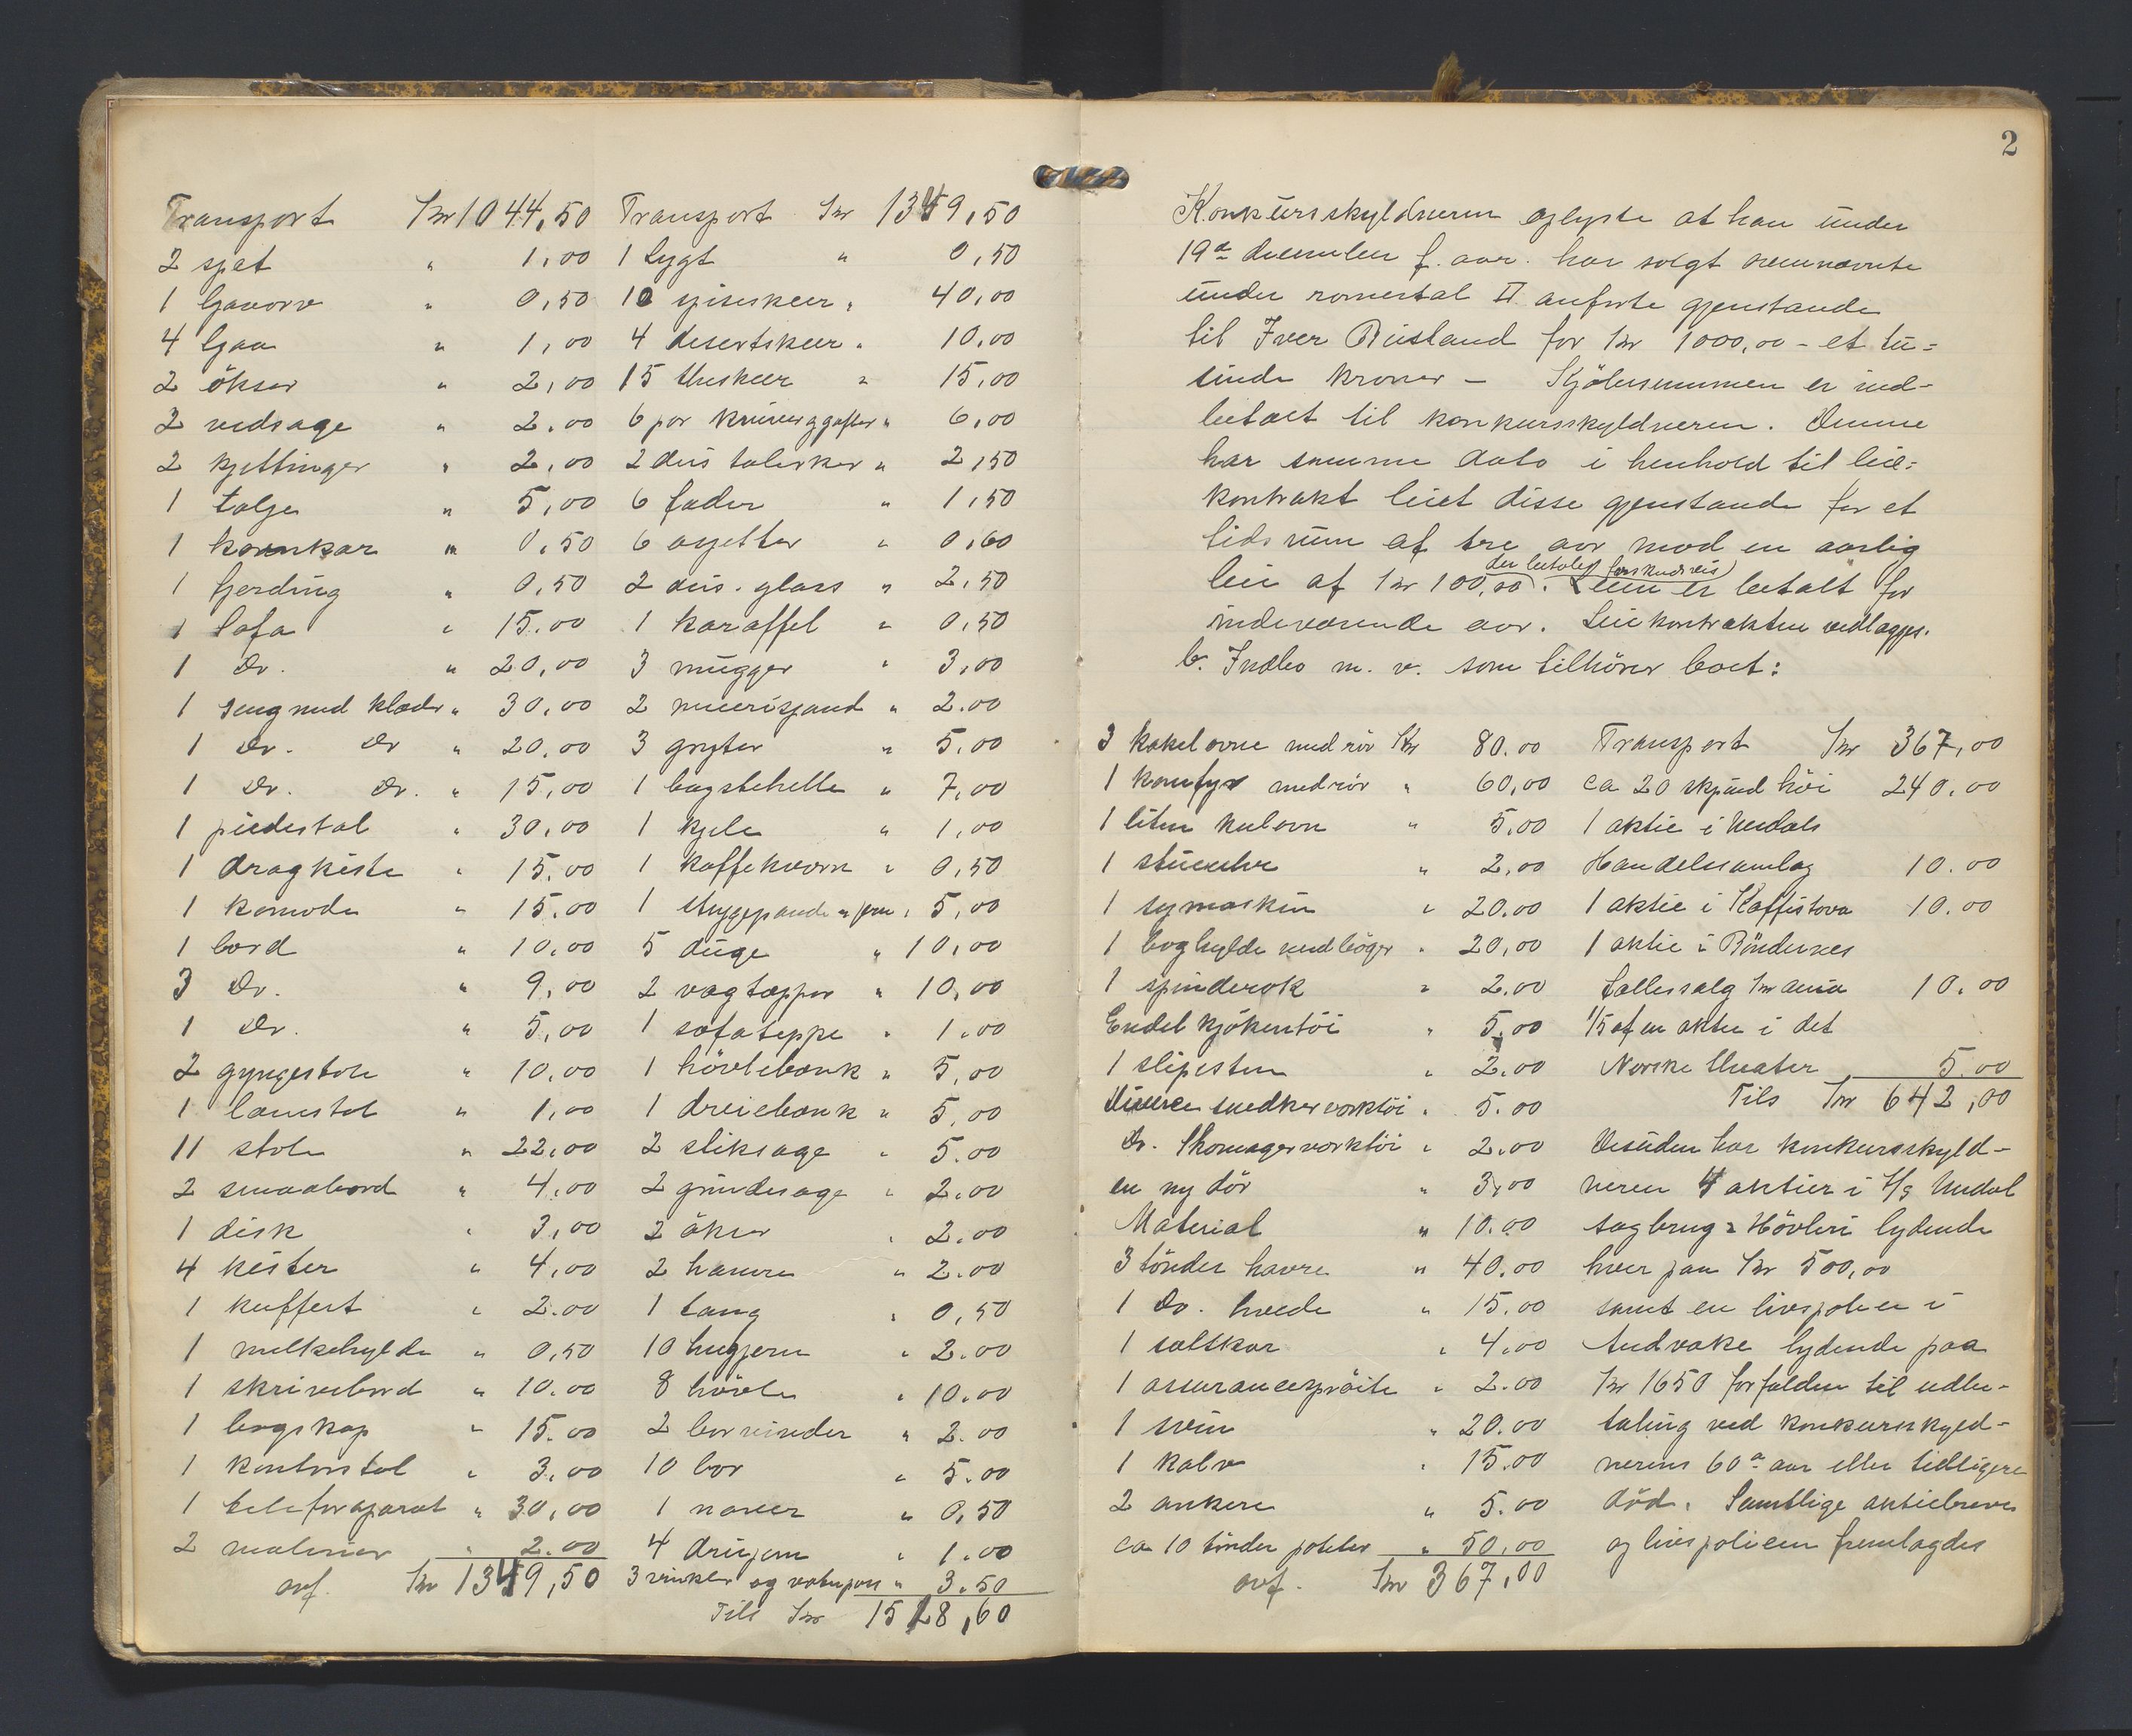 Transport Kr 1044,50
2 spet " 1,00
1 ljaaorv " 0,50
4 ljaa " 1,00
2 økser " 2,00
2 vedsage " 2,00
2 kjettinger " 2,00
1 talge " 5,00
1 kornkar " 0,50
1 fjerding " 0,50
1 Sofa " 15.00
1 Do. " 20,00
1 seng med klæder " 30,00
1 Do. Do " 20,00
1 Do. Do. " 15,00
1 piedestal " 30,00
1 dragkiste " 15.00
1 komode " 15.00
1 bord " 10,00
3 Do. " 9,00
1 Do. " 5,00
2 gyngestole " 10,00
1 lænestol " 1,00
11 stole " 22,00
2 smaabord " 4,00
1 disk " 3,00
4 kister " 4,00
1 kuffert " 2.00
1 melkehylde " 0,50
1 skrivebord " 10.00
1 bogskap " 15.00
1 kontorstol " 3.00
1 telefonaparat " 30,00
2 malerier " 2.00
ovf. Kr 1349,50
Transport Kr 1349,50
1 lygt " 0,50
10 spiseskeer " 40,00
4 desertskeer " 10,00
15 theskeer " 15,00
6 par kniver og gafler " 6,00
2 dus talerker " 2,50
6 fader " 1,50
6 asjetter " 0,60
2 dus. glass " 2,50
1 karaffel " 0,50
3 mugger " 3,00
2 meierispand " 2.00
3 gryter " 5.00
1 bagstehelle " 7,00
1 kjele " 1,00
1 kaffekværn " 0,50
1 strygepande " jern " 5,00
5 duge " 10,00
2 vægtæpper " 10,00
1 sofateppe " 1.00
1 høvlebænk " 5,00
1 dreiebænk " 5,00
2 stiksage " 5.00
2 grindesage " 2.00
2 økser " 2.00
2 hamre " 2.00
1 tang " 0,50
10 hugjern " 2.00
8 høvle " 10.00
2 borvinder " 2.00
10 bor " 5.00
1 naver " 0,50
4 dreijern " 1.00
3 vinkler og vaterpas " 3.50
Tils Kr 1528,60
2
Konkursskyldneren oplyste at han under
19de december f. aar. har solgt ovennævnte
under romertal II anførte gjenstande
til Iver Risland for kr 1000,00 - et tu=
sinde kroner - Kjøbesummen er ind-
betalt til konkursskyldneren. Denne
har samme dato i henhold til leie=
kontrakt leiet disse gjenstande for et
tidsrum af tre aar mod en aarlig
der betales forskudsvis)
leie af kr 100,00. Leien er betalt for
indeværende aar. Leiekontrakten vedlægges.
b. Indbo m. v. som tilhører boet:
3 kakelovne med rør Kr 80.00
1 komfyr med rør " 60,00
1 liten kulovn " 5.00
1 stueuhr " 2,00
1 symaskin " 20.00
1 boghylde med bøger " 20,00
1 spinderok " 2.00
Endel kjøkentøi " 5,00
1 slipesten " 2.00
Diverse snedkerverktøi " 5.00
Do. Skomagerverktøi " 2.00
en ny dør " 3,00
Material " 10.00
3 tønder havre " 40.00
1 Do. hvede " 15.00
1 saltskar " 4.00
1 assurancesprøite " 2.00
1 svin " 20.00
1 kalv " 15.00
2 ankere " 5.00
ca 10 tønder poteter " 50,00
ovf. Kr 367,00
Transport Kr 367,00
ca 20 skpund høi 240.00
1 aktie i Undals
Handelssamlag 10.00
1 aktie i Kaffistova 10.00
1 aktie i Bøndernes
Fællessalg Kr.ania 10.00
1/5 af en aktie i det
Norske theater 5.00
Tils Kr 642,00
Desuden har konkursskyld-
neren 4 aktier i A/S Undal
Sagbrug & Høvleri lydende
hver paa Kr 500,00
samt en livspolice i
Andvake lydende paa
Kr 1650 forfalden til udbe-
taling ved konkursskyld-
nerens 60de aar eller tidligere
død. Samtlige aktiebreve
og livspolicen fremlagdes